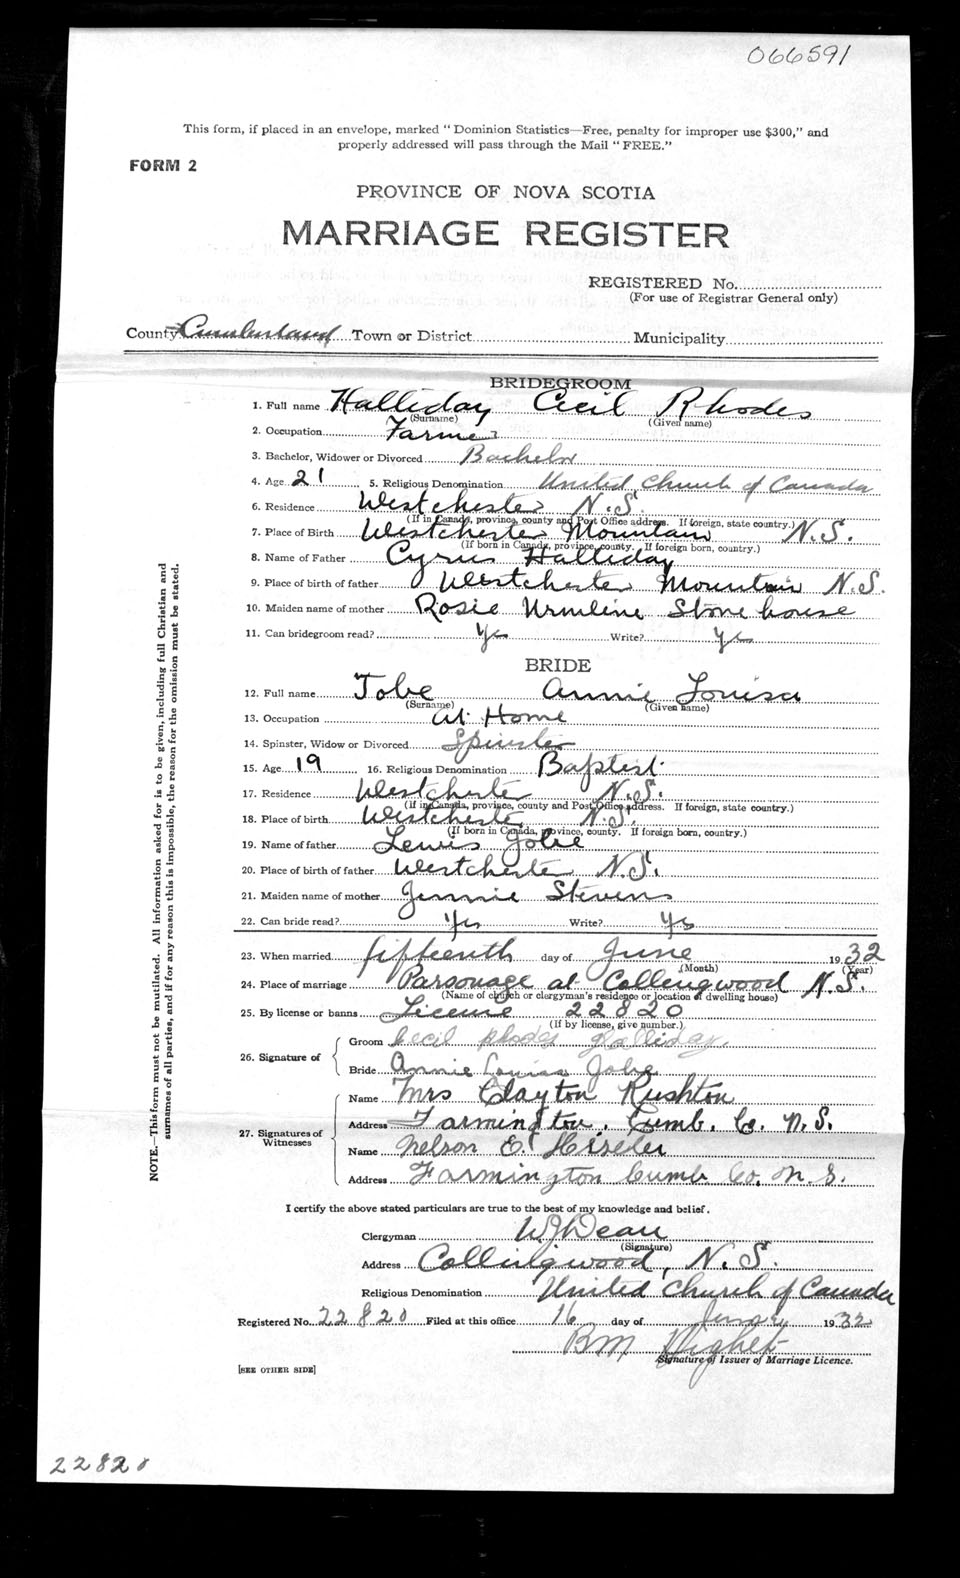 066591
This form, if placed in an envelope, marked "Dominion Statistics—Free, penalty for improper use $300," and
properly addressed will pass through the Mail "FREE."
FORM 2
PROVINCE OF NOVA SCOTIA
MARRIAGE REGISTER
REGISTERED No.
(For use of Registrar General only)
County Cumberland Town or District Municipality
BRIDEGROOM
1. Full name Halliday Cecil Rhodes
(Surname) (Given name)
2. Occupation Farmer
3. Bachelor, Widower or Divorced Bachelor
4. Age 21 5. Religious Denomination United Church of Canada
6. Residence Westchester N.S.
(If in Canada, province, county and Post Office address. If foreign, state country.)
7. Place of Birth Westchester Mountain N.S.
(If born in Canada, province, county. If foreign born, country.)
8. Name of Father Cyrus Halliday
9. Place of birth of father Westchester Mountain N.S.
10. Maiden name of mother Rosie Urmline Stonehouse
11. Can bridegroom read? Yes Write? Yes
BRIDE
12. Full name Jobe Annie Louisa
(Surname) (Given name)
13. Occupation At Home
14. Spinster, Widow or Divorced Spinster
15. Age 19 16. Religious Denomination Baptist
17. Residence Westchester N.S.
(If in Canada, province, county and Post Office address. If foreign, state country.)
18. Place of birth Westchester N.S.
(If born in Canada, province, county. If foreign born, country.)
19. Name of father Lewis Jobe
20. Place of birth of father Westchester N.S.
21. Maiden name of mother Jennie Stevens
22. Can bride read? Yes Write? Yes
23. When married fifteenth day of June 1932
(Month) (Year)
24. Place of marriage Parsonage at Collingwood N.S.
(Name of church or clergyman's residence or location of dwelling house)
25. By license or banns License 22820
(If by license, give number.)
26. Signature of
Groom Cecil Rhodes Halliday
Bride Annie Louisa Jobe
27. Signatures of Witnesses
Name Mrs Clayton Rushton
Address Farmington, Cumb. Co. N.S.
Name Nelson E. Hiseler
Address Farmington Cumb Co. N.S.
I certify the above stated particulars are true to the best of my knowledge and belief.
Clergyman W J Dean
(Signature)
Address Collingwood, N.S.
Religious Denomination United Church of Canada
Registered No. 22820 Filed at this office 16 day of June 1932
BM Highet
Signature of Issuer of Marriage Licence.
[SEE OTHER SIDE]
22820
NOTE.—This form must not be mutilated. All information asked for is to be given, including full Christian and
surnames of all parties, and if for any reason this is impossible, the reason for the omission must be stated.